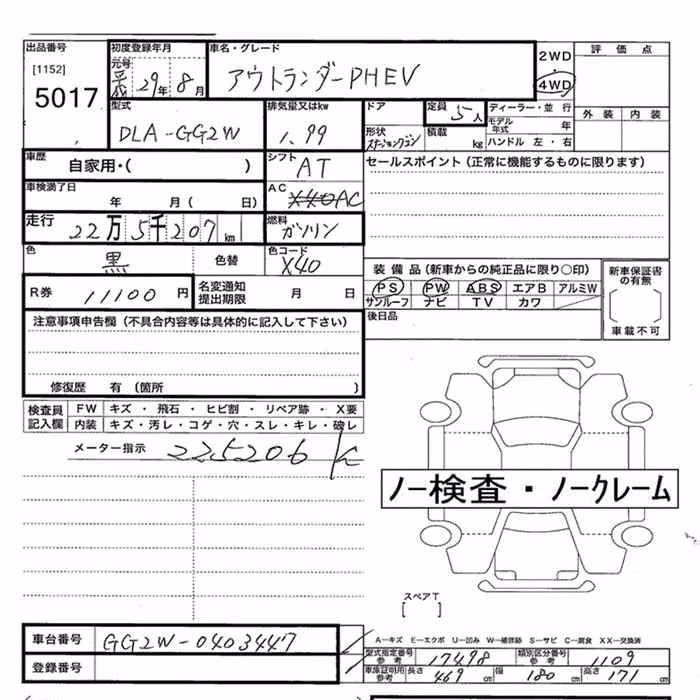 出品番号 初度登録年月 車名・グレード 2WD 評価点
[1152] 元号 平成 29年 8月 アウトランダーPHEV 4WD
5017 型式 排気量又はkw ドア 定員 5人 ディーラー・並行 外装 内装
DLA-GG2W 1.99 形状 ステーションワゴン 積載 kg モデル年式 年
ハンドル 左・右
車歴 自家用・( ) シフト AT セールスポイント (正常に機能するものに限ります)
車検満了日 年 月( 日) AC AC
走行 22万5千207km 燃料 ガソリン
色 黒 色替 色コード X40
装備品 (新車からの純正品に限り○印) 新車保証書の有無
R券 11100円 名変通知提出期限 月 日
PS PW ABS エアB アルミW
サンルーフ ナビ TV カワ
( ) 車載不可
注意事項申告欄 (不具合内容等は具体的に記入して下さい) 後日品
修復歴 有 (箇所 )
検査員記入欄 FW キズ・飛石・ヒビ割・リペア跡・X要
内装 キズ・汚レ・コゲ・穴・スレ・キレ・破レ
メーター指示 225206
ノー検査・ノークレーム
スペアT
[ ]
車台番号 GG2W-0403447
A―キズ E―エクボ U―凹み W―補修跡 S―サビ C―腐食 XX―交換済
登録番号 型式指定番号 参考 17498 類別区分番号 参考 1109
車庫証明用 参考 長さ 469cm 幅 180cm 高さ 171cm